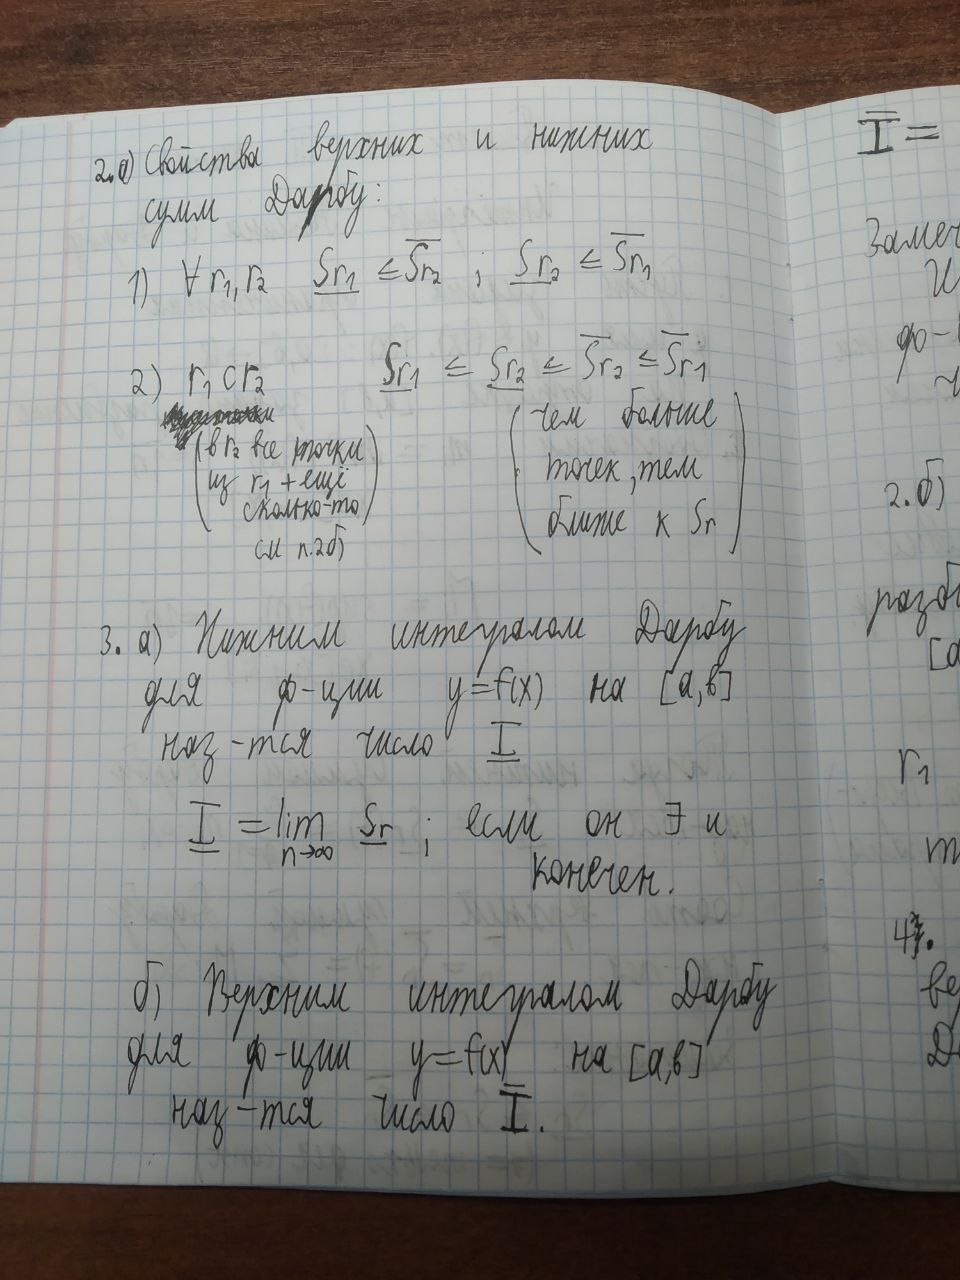 2.а) Свойства верхних и нижних
сумм Дарбу:
1) ∀ r₁, r₂ S̲r₁ ≤ S̅r₂ ; S̲r₂ ≤ S̅r₁
2) r₁ ⊂ r₂ S̲r₁ ≤ S̲r₂ ≤ S̅r₂ ≤ S̅r₁
(в r₂ все точки
из r₁ + ещё
сколько-то)
см п.2б)
(чем больше
точек, тем
ближе к Sr)
3. а) Нижним интегралом Дарбу
для ф-ции y=f(x) на [a,в]
наз-тся число I̲
I̲ = lim S̲r ; если он ∃ и
n→∞
конечен.
б) Верхним интегралом Дарбу
для ф-ции y=f(x) на [a,в]
наз-тся число I̅.
I̅ =
Замеч
ф-
2.б)
разб
[a
r₁
4.
ве